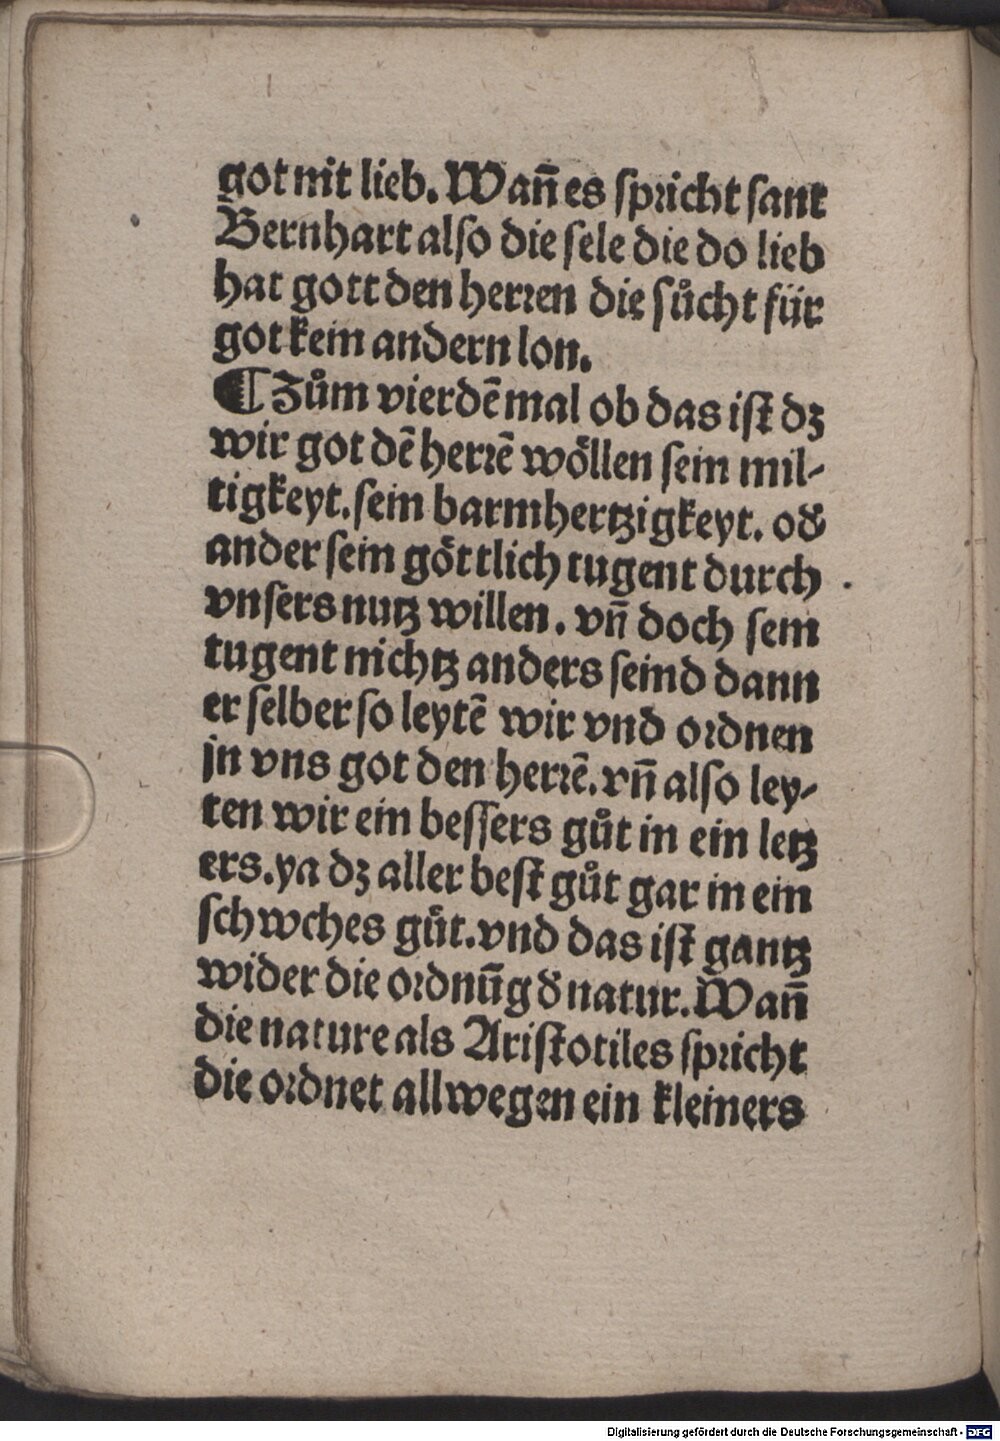 got nit lieb. Wañ es ſpricht ſant
Bernhart alſo die ſele die do lieb
hat gott den herꝛen die ſůcht für
got kein andern lon.
¶ Zům vierdē mal ob das iſt dꝫ
wir got dē herꝛē wöllen ſein mil⸗
tigkeyt. ſein barmhertzigkeyt. oď
ander ſein göttlich tugent durch
vnſers nutz willen. vñ doch ſein
tugent nichtz anders ſeind dann
er ſelber ſo leytē wir vnd oꝛdnen
jn vns got den herꝛē. vñ alſo ley⸗
ten wir ein beſſers gůt in ein letz
ers. ya dꝫ aller beſt gůt gar in ein
ſchwches gůt. vnd das iſt gantz
wider die oꝛdnūg ď natur. Wañ
die nature als Ariſtotiles ſpꝛicht
die oꝛdnet allwegen ein kleiners
Digitalisierung gefördert durch die Deutsche Forschungsgemeinschaft - DFG